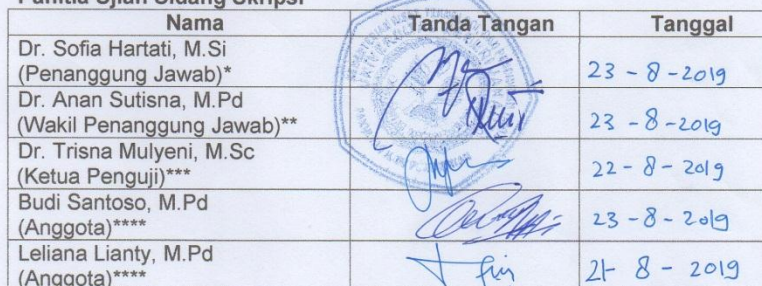 Panitia Ujian Sidang Skripsi
Nama Tanda Tangan Tanggal
Dr. Sofia Hartati, M.Si
(Penanggung Jawab)* 23 - 8 - 2019
Dr. Anan Sutisna, M.Pd
(Wakil Penanggung Jawab)** 23 - 8 - 2019
Dr. Trisna Mulyeni, M.Sc
(Ketua Penguji)*** 22 - 8 - 2019
Budi Santoso, M.Pd
(Anggota)**** 23 - 8 - 2019
Leliana Lianty, M.Pd
(Anggota)**** 21- 8 - 2019